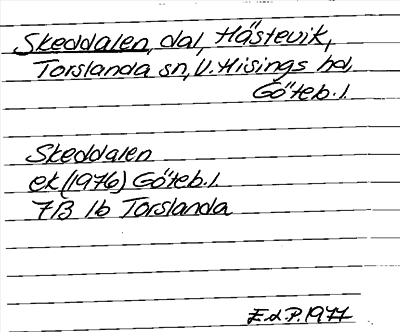 Skeddalen, dal, Hästevik,
Torslanda sn, V. Hisings hd,
Göteb. l.
Skeddalen
ek (1976) Göteb. l.
7B 1b Torslanda
E.d.P. 1977